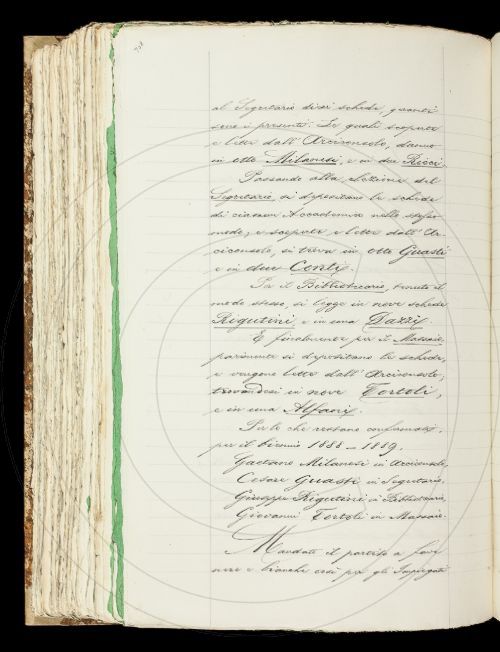 al Segretario dieci schede, quanti
sono i presenti. Le quali scoperte
e lette dall'Arciconsolo, danno
in otto Milanesi, e in due Ricci.
Passando alla elezione del
Segretario, si depositano le schede
di ciascun Accademico nello stesso
modo; e scoperte e lette dall'Ar-
ciconsolo, si trova in otto Guasti
e in due Conti.
Per il Bibliotecario, tenuto il
modo stesso, si legge in nove schede
Rigutini, e in una Dazzi.
E finalmente per il Massaio,
parimente si depositano le schede,
e vengono lette dall'Arciconsolo;
trovandosi in nove Tortoli,
e in una Alfani.
Per lo che restano confermati,
per il biennio 1888-1889,
Gaetano Milanesi in Arciconsolo,
Cesare Guasti in Segretario,
Giuseppe Rigutini in Bibliotecario,
Giovanni Tortoli in Massaio.
Mandato il partito a fave
nere e bianche così per gli Impiegati